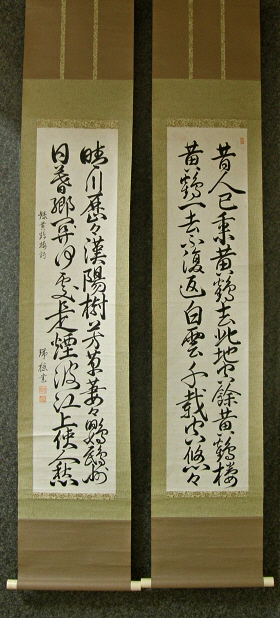 昔人已乗黄鶴去此地空餘黄鶴樓
黄鶴一去不復返白雲千載空悠々
晴川歴々漢陽樹芳草萋々鸚鵡州
日暮郷関何処是煙波江上使人愁
黄鶴楼詩